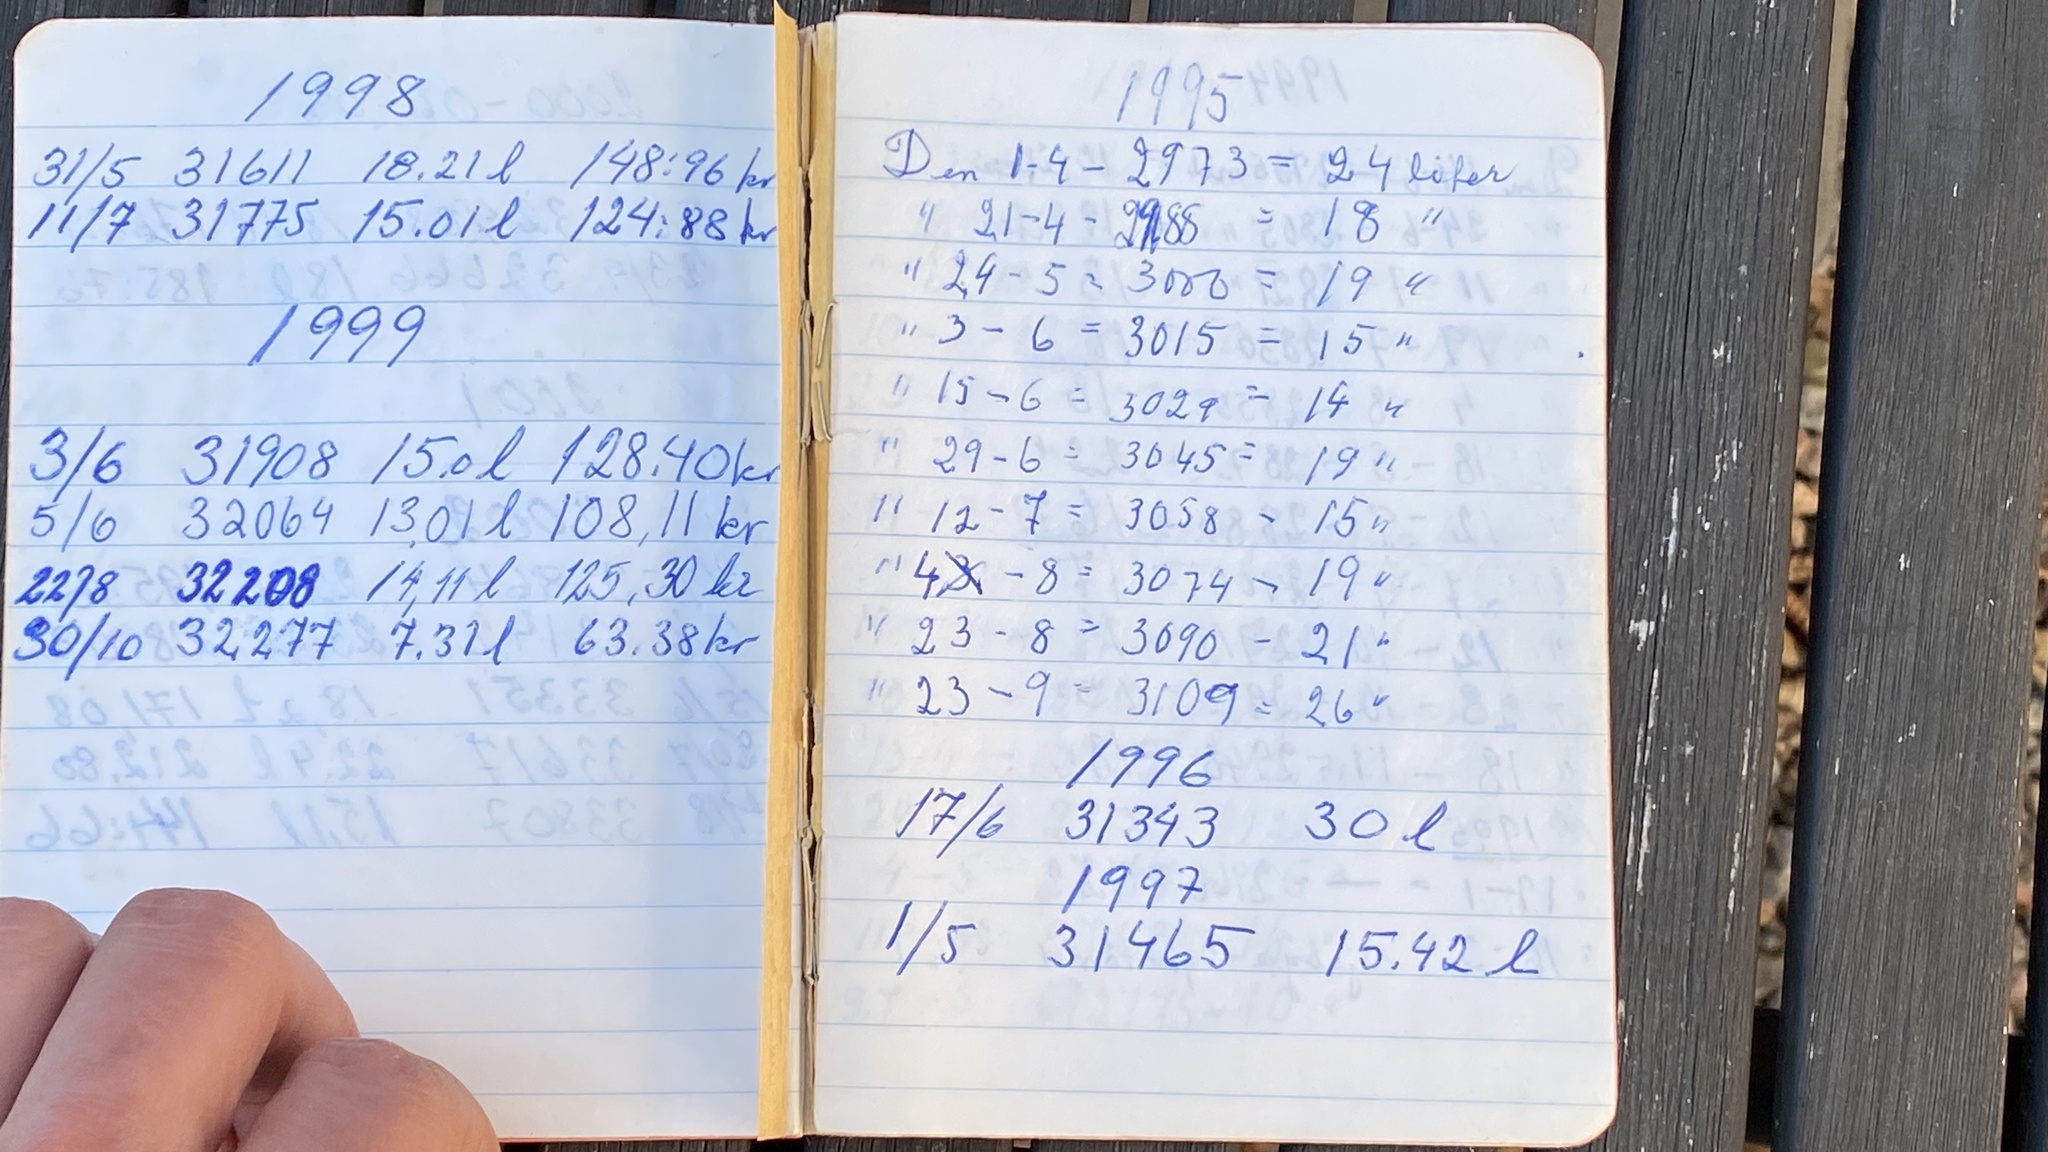 1998
31/5 31611 18.21 l 148:96 kr
11/7 31775 15.01 l 124:88 kr
1999
3/6 31908 15.0 l 128.40 kr
5/6 32064 13,01 l 108,11 kr
22/8 32208 14,11 l 125,30 kr
30/10 32277 7.31 l 63.38 kr
1995
Den 1-4 - 2973 = 24 liter
" 21-4 - 2988 = 18 "
" 24-5 = 3000 = 19 "
" 3-6 = 3015 = 15 "
" 15-6 = 3029 = 14 "
" 29-6 = 3045 = 19 "
" 12-7 = 3058 - 15 "
" 4 -8 = 3074 - 19 "
" 23-8 = 3090 - 21 "
" 23-9 = 3109 = 26 "
1996
17/6 31343 30 l
1997
1/5 31465 15.42 l